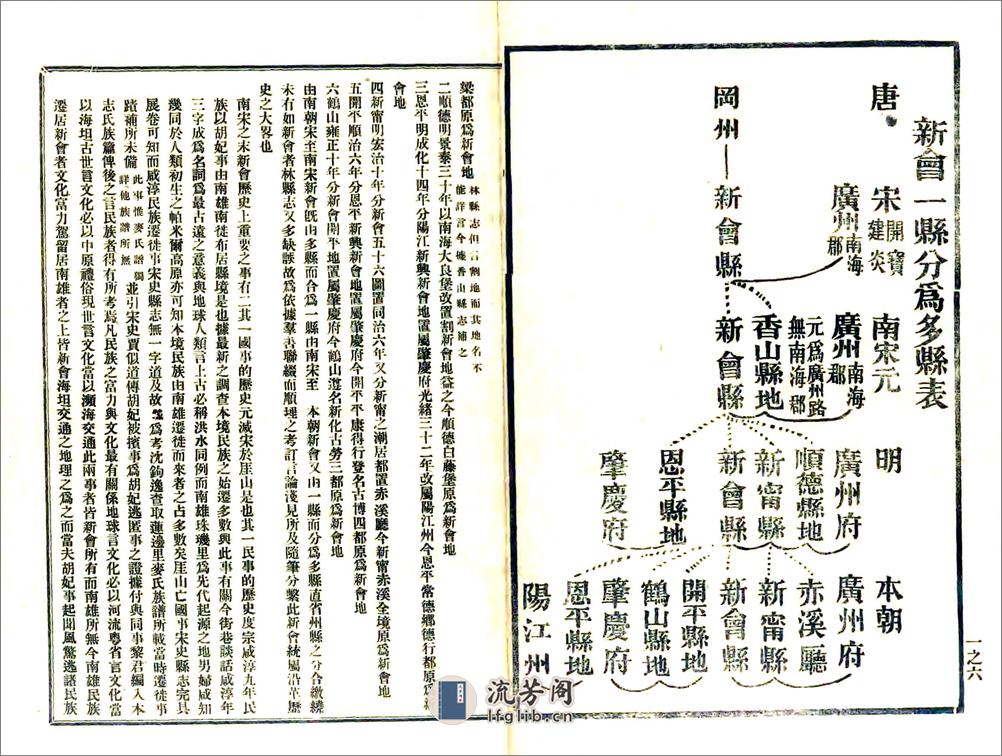 新會一縣分爲多縣表
唐
宋
開寶
建炎
南宋元
明
本朝
岡州
新會縣
廣州
南海郡
新會縣
香山縣地
元爲廣州路
無南海郡
廣州
南海郡
廣州府
順德縣地
新甯縣
新會縣
恩平縣地
肇慶府
廣州府
赤溪廳
新甯縣
新會縣
開平縣地
鶴山縣地
肇慶府
恩平縣地
陽江州
一之六
梁都原爲新會地
林縣志但言割地而其地名不
能詳言今據香山縣志補之
二順德明景泰三十年以南海大良堡改置割新會地益之今順德白藤堡原爲新會地
三恩平明成化十四年分陽江新興新會地置屬肇慶府光緒三十二年改屬陽江州今恩平常德鄉德行都原爲新
會地
四新甯明宏治十年分新會五十六圖置同治六年又分新甯之潮居都置赤溪廳今新甯赤溪全境原爲新會地
五開平順治六年分恩平新興新會地置屬肇慶府今開平平康得行登名古博四都原爲新會地
六鶴山雍正十年分新會開平地置屬肇慶府今鶴山遵名新化古勞三都原爲新會地
由南朝宋至南宋新會旣由多縣而合爲一縣由南宋至　本朝新會又由一縣而分爲多縣直省州縣之分合繳繞
未有如新會者林縣志又多缺誤故爲依據羣善聯綴而順理之考訂言論淺見所及隨筆分繫此新會統屬沿革歷
史之大畧也
南宋之末新會歷史上重要之事有二其一國事的歷史元滅宋於厓山是也其一民事的歷史度宗咸淳九年民
族以胡妃事由南雄南徙布居縣境是也據最新之調查本境民族之始遷多數與此事有關今街巷談話咸淳年
三字成爲名詞爲最古遠之意義與地球人類言上古必稱洪水同例而南雄珠璣里爲先代起源之地男婦咸知
幾同於人類初生之帕米爾高原亦可知本境民族由南雄遷徙而來者之占多數矣厓山亡國事宋史縣志完具
展卷可知而咸淳民族遷徙事宋史縣志無一字道及故爲考沈鉤逸查取蓮邊里麥氏族譜所載當時遷徙事
蹟補所未備
此事惟麥氏譜獨
詳他族譜所無
並引宋史賈似道傳胡妃被擯事爲胡妃逃匿事之證據付與同事黎君編入本
志氏族篇俾後之言民族者得有所考焉凡民族之富力與文化最有關係地球言文化必以河流粤省言文化當
以海坦古世言文化必以中原禮俗現世言文化當以瀕海交通此兩事者皆新會所有而南雄所無今南雄民族
遷居新會者文化富力駕留居南雄者之上皆新會海坦交通之地理之爲之而當夫胡妃事起聞風驚逃諸民族
流芳閣
lfglib.cn